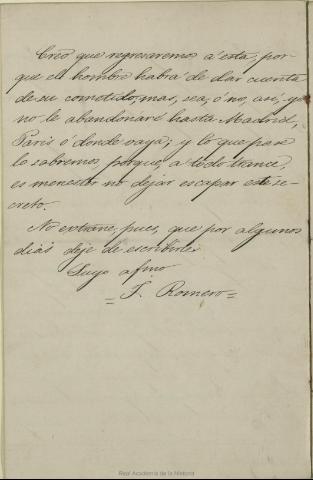 Creo que regresaremo á esta, por-
que el hombre habrá de dar cuenta
de su cometido; mas, sea, ó no, así, yo
no le abandonaré hasta Madrid,
Paris ó donde vaya; y lo que pase
lo sabremos porque, a todo trance,
es menester no dejar escapar este se-
creto.
No extrañe, pues, que por algunos
dias deje de escribirle
Suyo afmo
= J. Romero =
Real Academia de la Historia